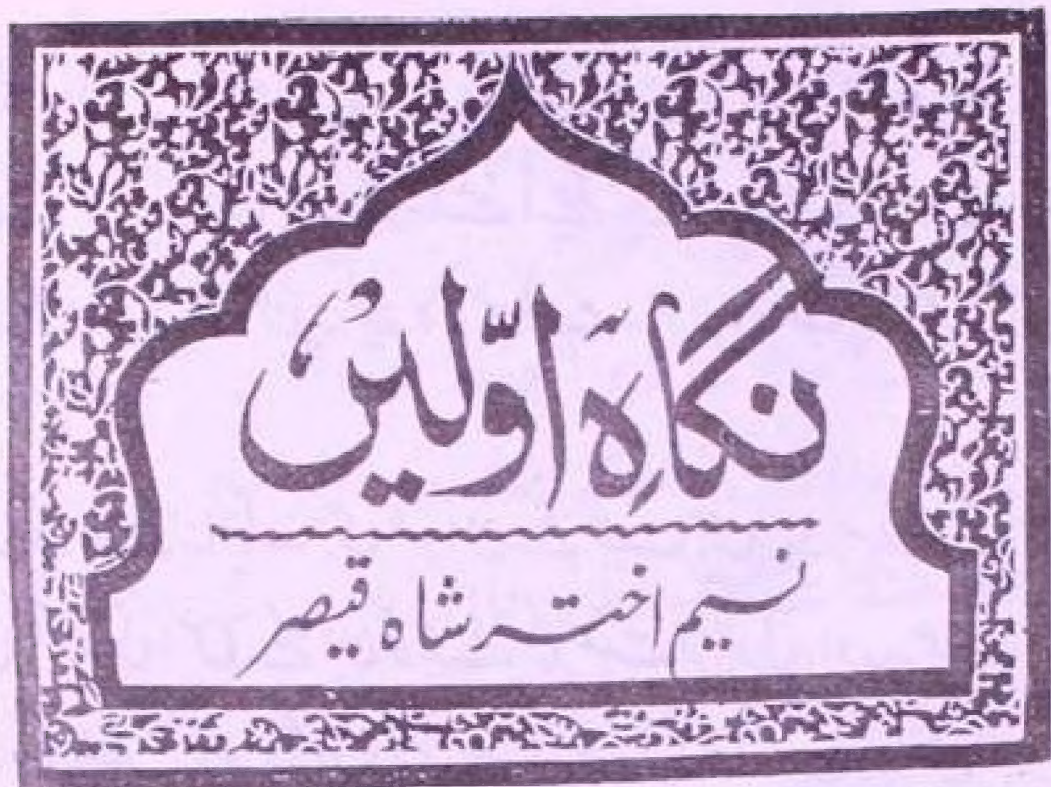 نگاہِ اوّلیں
نسیم اختر شاہ قیصر